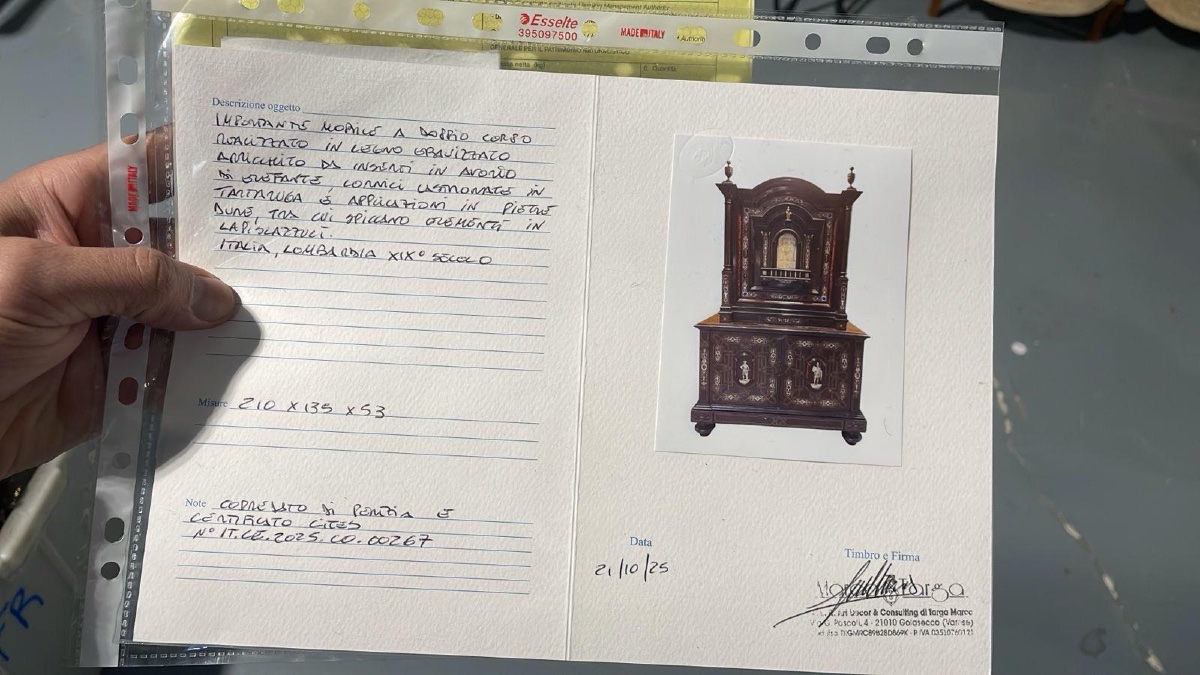 Management Authority
Esselte
395097500
MADE IN ITALY
Authority
GENERALE PER IL PATRIMONIO
netta (kg)
Quantità
MADE IN ITALY
Descrizione oggetto
IMPORTANTE MOBILE A DOPPIO CORPO
REALIZZATO IN LEGNO EBANIZZATO
ARRICCHITO DA INSERTI IN AVORIO
DI ELEFANTE, CORNICI LASTRONATE IN
TARTARUGA E APPLICAZIONI IN PIETRE
DURE, TRA CUI SPICCANO ELEMENTI IN
LAPISLAZZULI.
ITALIA, LOMBARDIA XIX° SECOLO
Misure 210 X 135 X 53
Note CORREDATO DI PERIZIA E
CERTIFICATO CITES
N° IT.CE.2025.CO.00267
Data
21/10/25
Timbro e Firma
Targa
Art Decor & Consulting di Targa Marco
Pascoli, 4 - 21010 Golasecca (Varese)
P.IVA